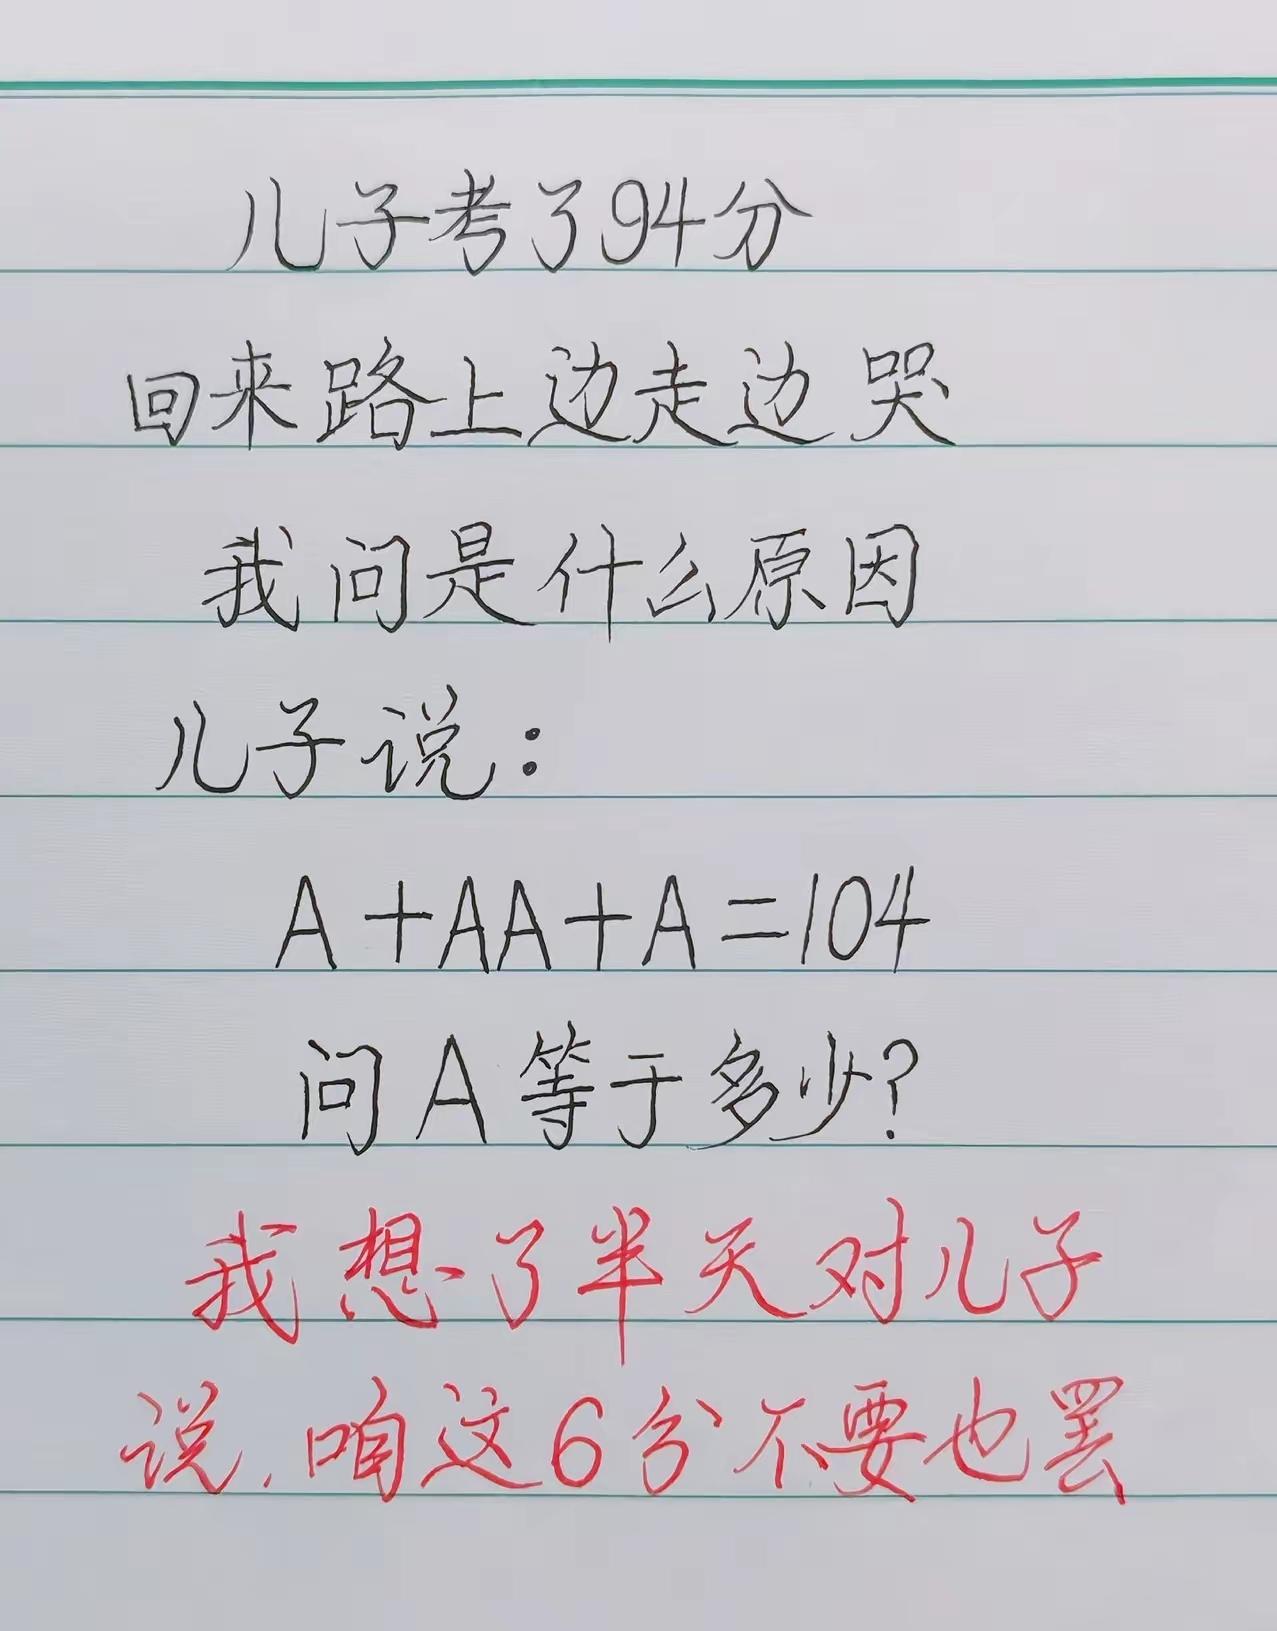 儿子考了94分
回来路上边走边哭
我问是什么原因
儿子说：
A+AA+A=104
问A等于多少?
我想了半天对儿子
说,咱这6分不要也罢